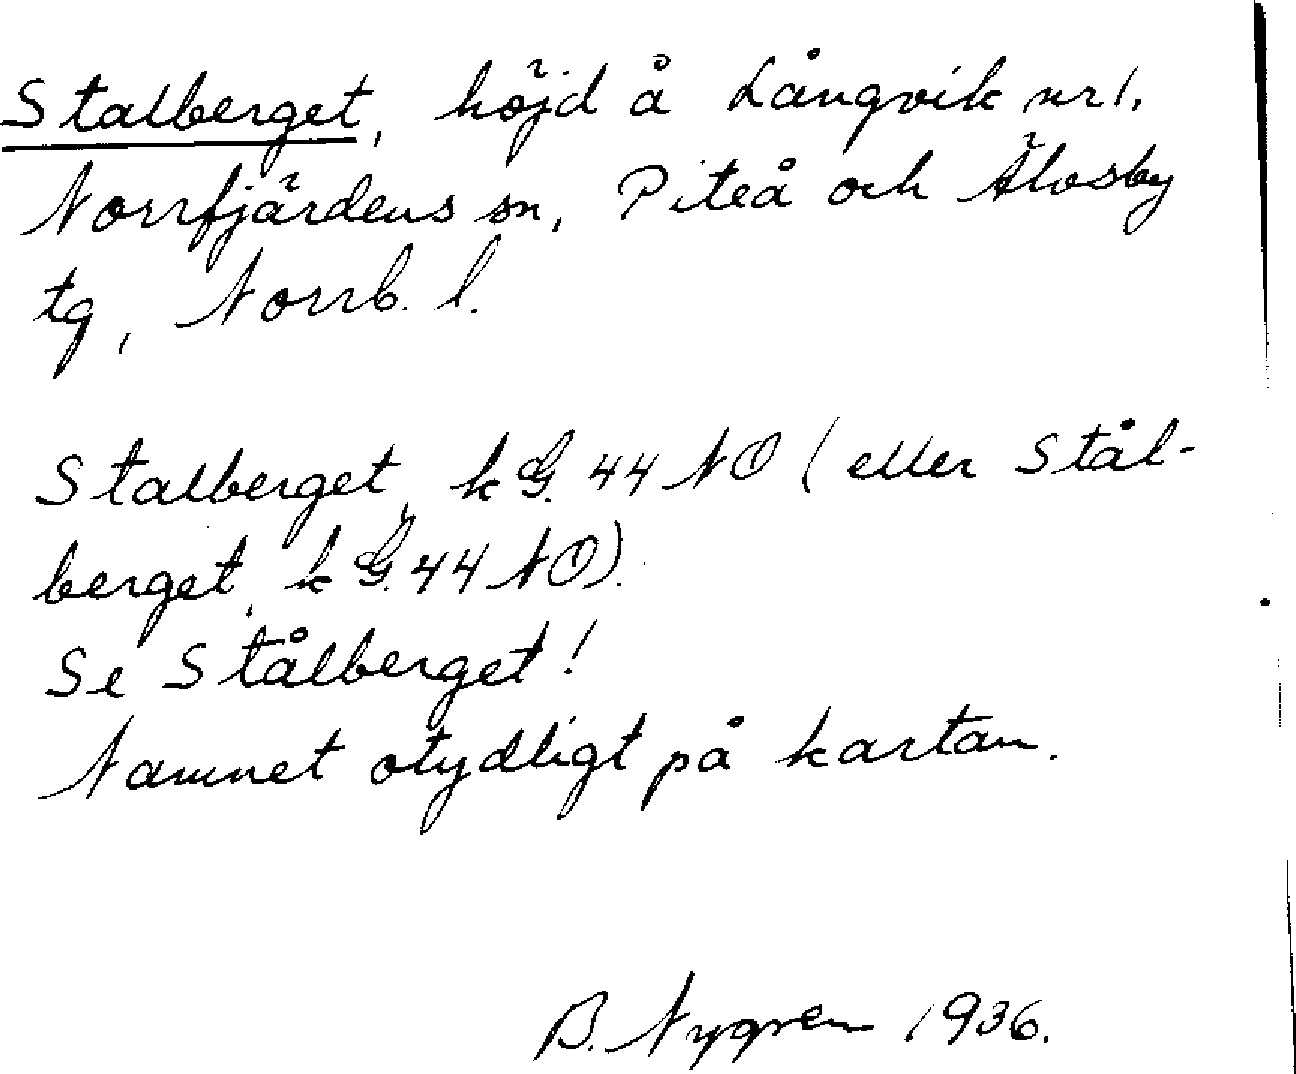 Stalberget, höjd å Långvik nr 1,
Norrfjärdens sn, Piteå och Älvsby
tg, Norrb. l.
Stalberget, k G. 44 NO (eller Stål-
berget, k G. 44 NO).
Se Stålberget!
Namnet otydligt på kartan.
B. Nygren 1936.